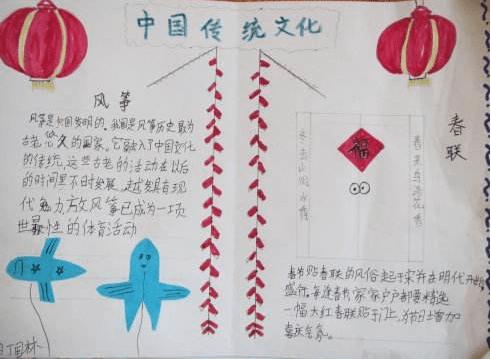 中国传统文化
风筝
风筝是中国发明的，我国是风筝历史最为
古老悠久的国家。它融入了中国文化
的传统，这些古老的活动在以后
的时间里不断发展，越发具有现
代魅力，放风筝已成为一项
世界性的体育活动
春联
福
冬去山明水秀
春来鸟语花香
春节贴春联的风俗起于宋并在明代开始
盛行。每逢春节家家户户都要精选
一幅大红春联贴于门上，为节日增加
喜庆气氛。